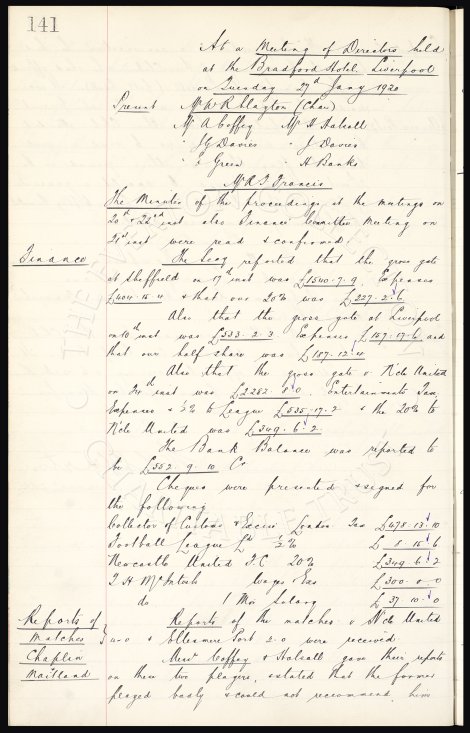 141
At a Meeting of Directors held
at the Bradford Hotel. Liverpool
on Tuesday 27th Jany 1920
Present Mr W R Clayton (Chair)
Mr A Coffey Mr H Halsall
" J G Davies " J Davies
" E Green " A Banks
Mr R J Francis
The Minutes of the proceedings at the meetings on
20th & 22nd inst also Finance Committee Meeting on
21st inst were read & confirmed.
Finance The Secy reported that the gross gate
at Sheffield on 17th inst was £1540.7.9. Expenses
£404.15.4 & that our 20% was £227.2.6
Also that the gross gate at Liverpool
on inst was £533.2.3 Expenses £157.17.6 and
that our half share was £187.12.4
Also that the gross gate v N'cle United
on inst was £2282.8.0. Entertainments Tax,
Expenses & ½% to League £535.17.2 & the 20% to
N'cle United was £349.6.2
The Bank Balance was reported to
be £552.9.10 Cr
Cheques were presented & signed for
the following
Collector of Customs & Excise London Tax £478.13.10
Football League Ltd ½% £8.15.6
Newcastle United F.C 20% £349.6.2
W. J. McIntosh Wages &as £300.0.0
do 1 Mos Salary £37.10.0
Reports of Reports of the matches v N'cle United
Matches } & Ellesmere Port 2-0 were received
Chaplin Messrs Coffey & Halsall gave their reports
Maitland on these two players, & stated that the former
played badly & could not recommend him